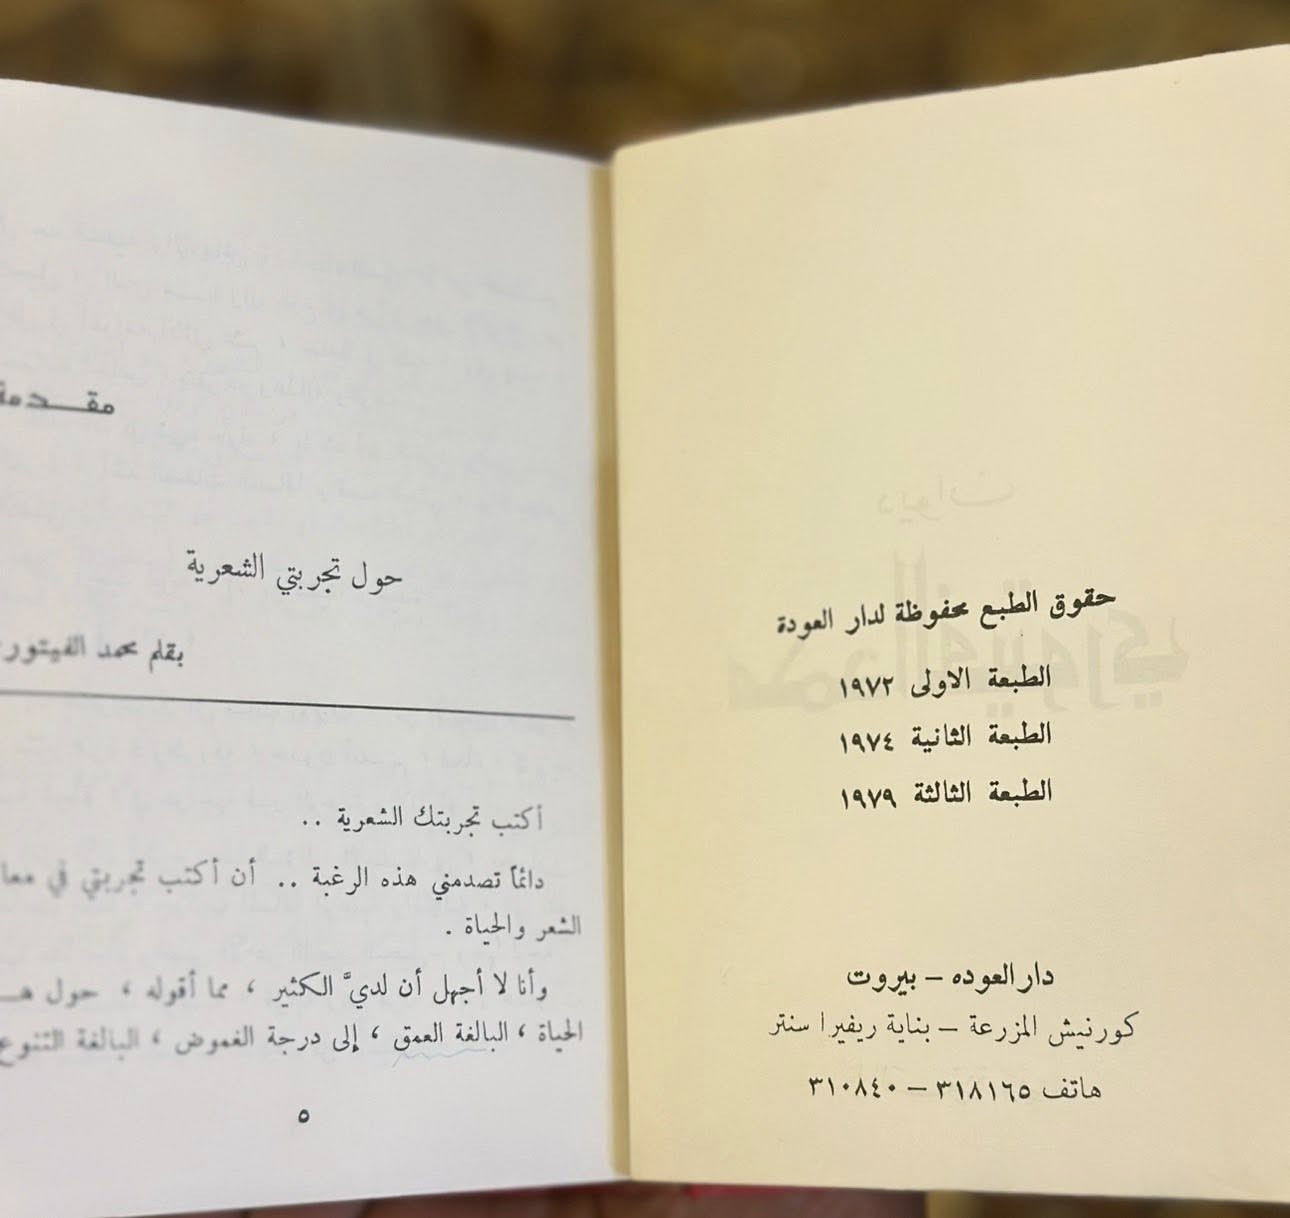 حقوق الطبع محفوظة لدار العودة
الطبعة الاولى ١٩٧٢
الطبعة الثانية ١٩٧٤
الطبعة الثالثة ١٩٧٩
دار العوده – بيروت
كورنيش المزرعة – بناية ريفيرا سنتر
هاتف ٣١٨١٦٥ – ٣١٠٨٤٠
مقـــدمة
حول تجربتي الشعرية
بقلم محمد الفيتوري
أكتب تجربتك الشعرية ..
دائماً تصدمني هذه الرغبة .. أن أكتب تجربتي في
الشعر والحياة .
وأنا لا أجهل أن لديَّ الكثير ، مما أقوله ، حول
الحياة ، البالغة العمق ، إلى درجة الغموض ، البالغة التنوع
٥